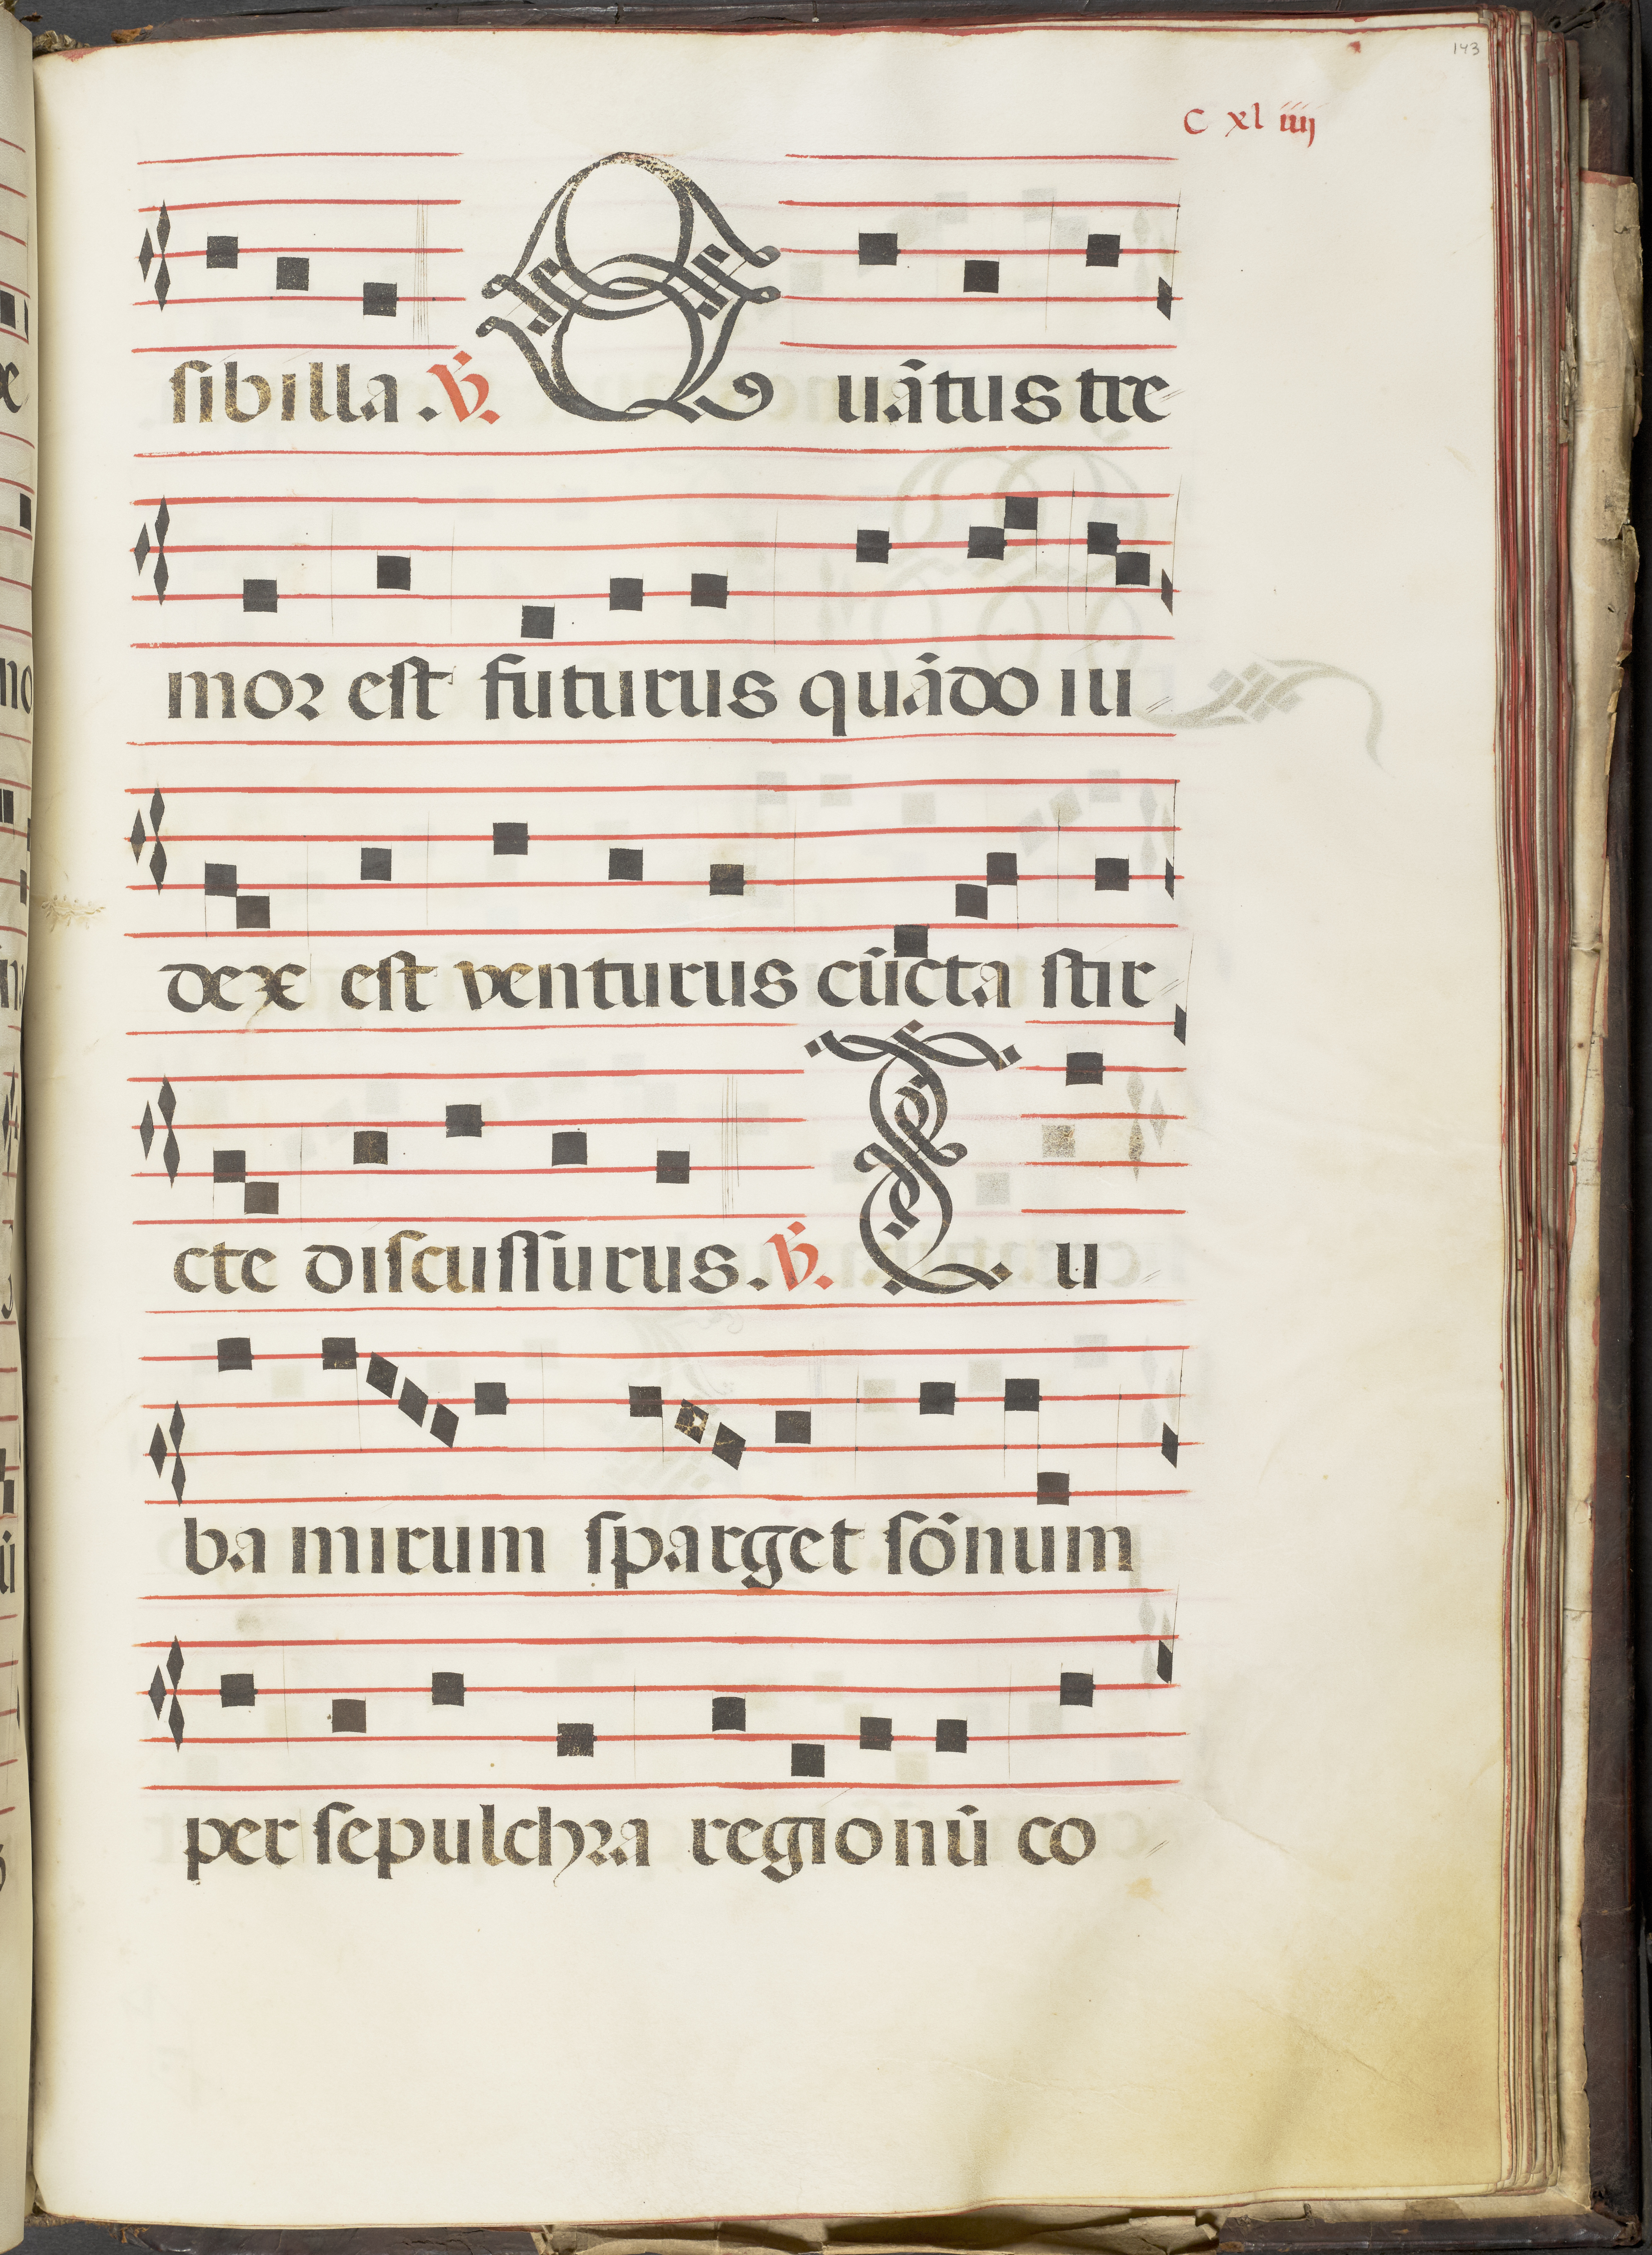 143
C xl iiij
sibilla. ℣. Quãtus tre
mor est futurus quãdo iu
dex est venturus cũcta stir
cte discussurus. ℣. Tu
ba mirum sparget sonum
per sepulchra regionũ co